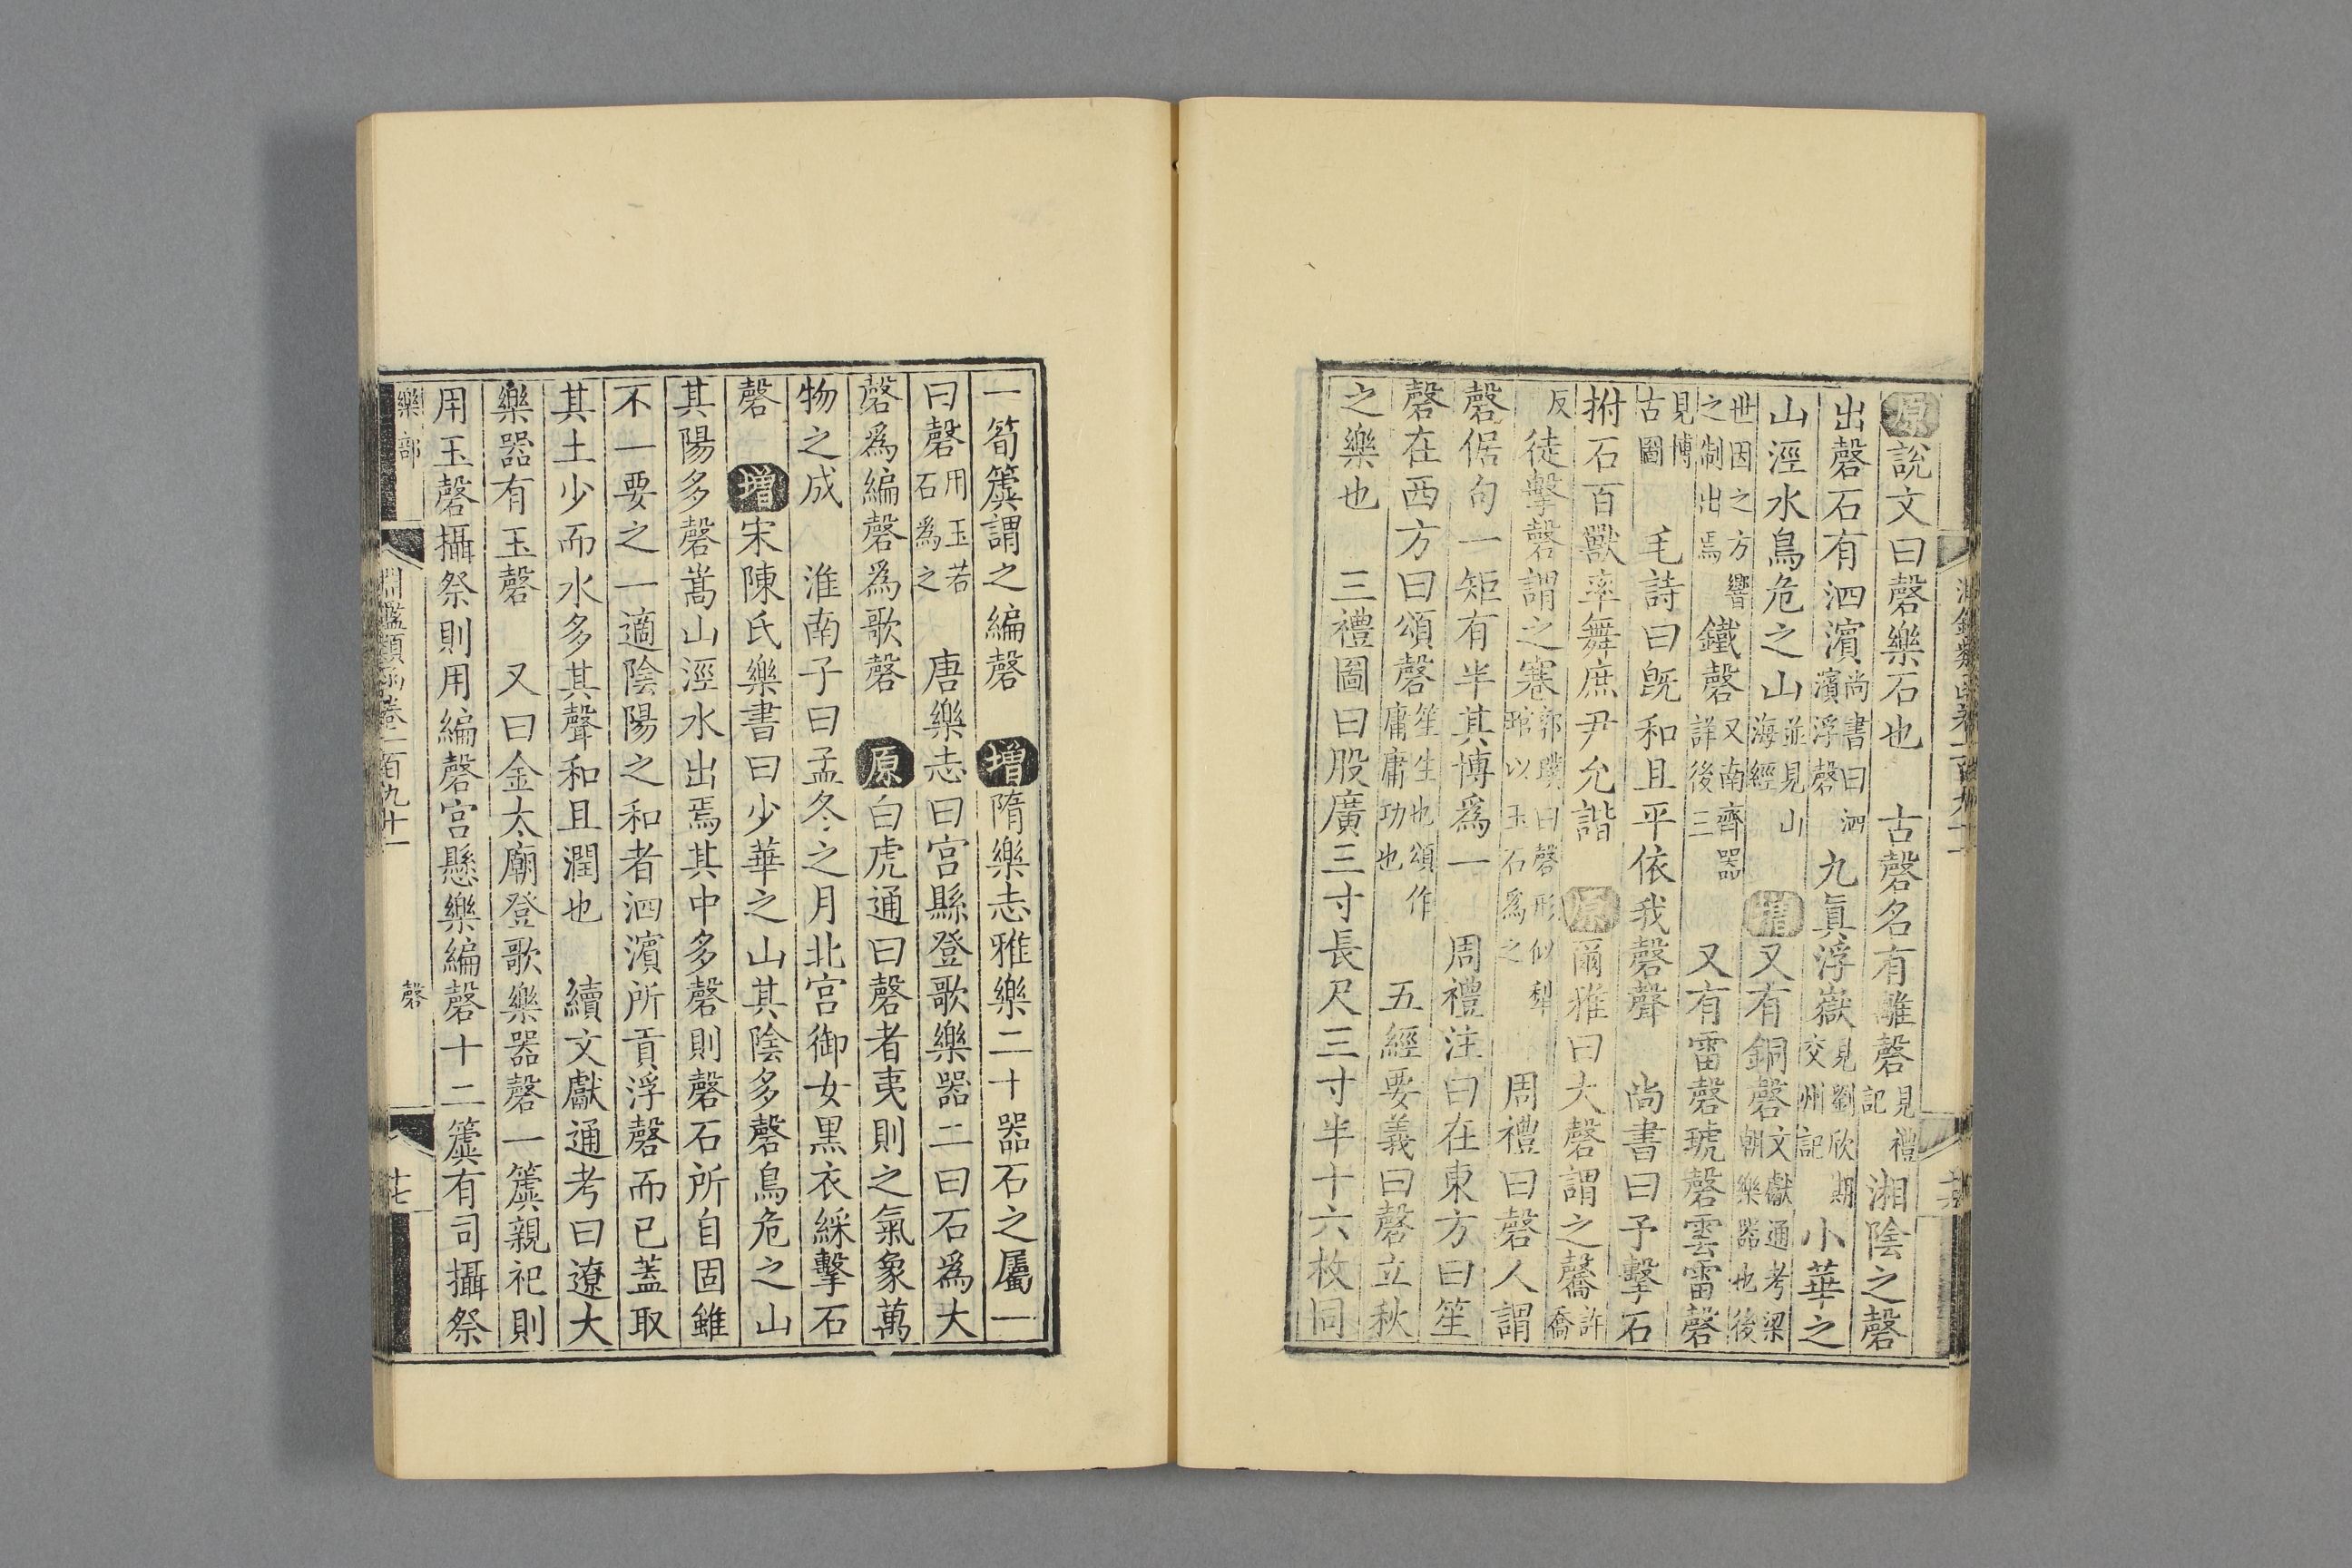 原說文曰磬樂石也　古磬名有離磬見禮記湘陰之磬
出磬石有泗濱尚書曰泗濱浮磬九眞浮嶽見劉欣期交州記小華之
山涇水鳥危之山並見山海經增又有銅磬文獻通考梁朝樂器也後
世因之方響之制出焉鐵磬又南齊器詳後三又有雷磬琥磬雲雷磬
見博古圖毛詩曰旣和且平依我磬聲　尚書曰予擊石
拊石百獸率舞庶尹允諧　原爾雅曰大磬謂之毊許喬
反徒擊磬謂之寋郭璞曰磬形似犁琯以玉石爲之周禮曰磬人謂
磬倨句一矩有半其博爲一　周禮注曰在東方曰笙
磬在西方曰頌磬笙生也頌作庸庸功也五經要義曰磬立秋
之樂也　三禮圖曰股廣三寸長尺三寸半十六枚同
一筍簴謂之編磬　增隋樂志雅樂二十器石之屬一
曰磬用玉若石爲之　唐樂志曰宮縣登歌樂器二曰石爲大
磬爲編磬爲歌磬　原白虎通曰磬者夷則之氣象萬
物之成　淮南子曰孟冬之月北宮御女黑衣綵擊石
磬　增宋陳氏樂書曰少華之山其陰多磬鳥危之山
其陽多磬嵩山涇水出焉其中多磬則磬石所自固雖
不一要之一適陰陽之和者泗濱所貢浮磬而已蓋取
其土少而水多其聲和且潤也　續文獻通考曰遼大
樂器有玉磬　又曰金太廟登歌樂器磬一簴親祀則
用玉磬攝祭則用編磬宮懸樂編磬十二簴有司攝祭
樂部　淵鑑類函卷一百九十一　磬　廿七